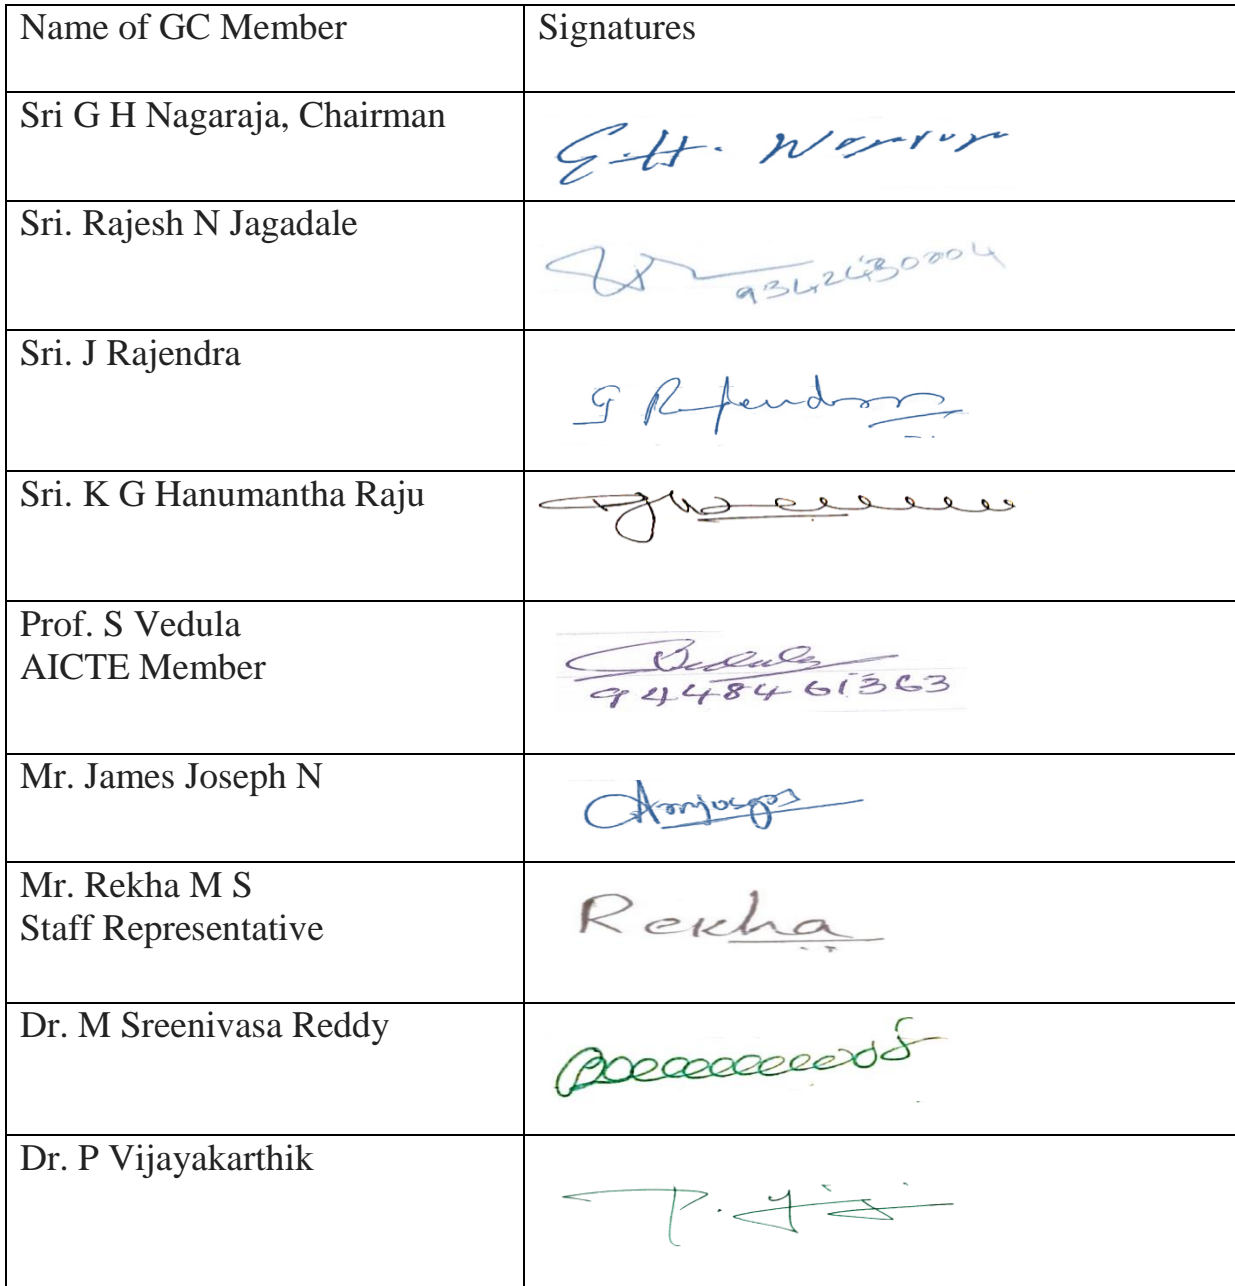 Name of GC Member Signatures
Sri G H Nagaraja, Chairman
G.H.
Sri. Rajesh N Jagadale
9342430004
Sri. J Rajendra
Sri. K G Hanumantha Raju
Prof. S Vedula
AICTE Member
Vedula
9448461363
Mr. James Joseph N
Mr. Rekha M S
Staff Representative
Rekha
Dr. M Sreenivasa Reddy
Dr. P Vijayakarthik
P.